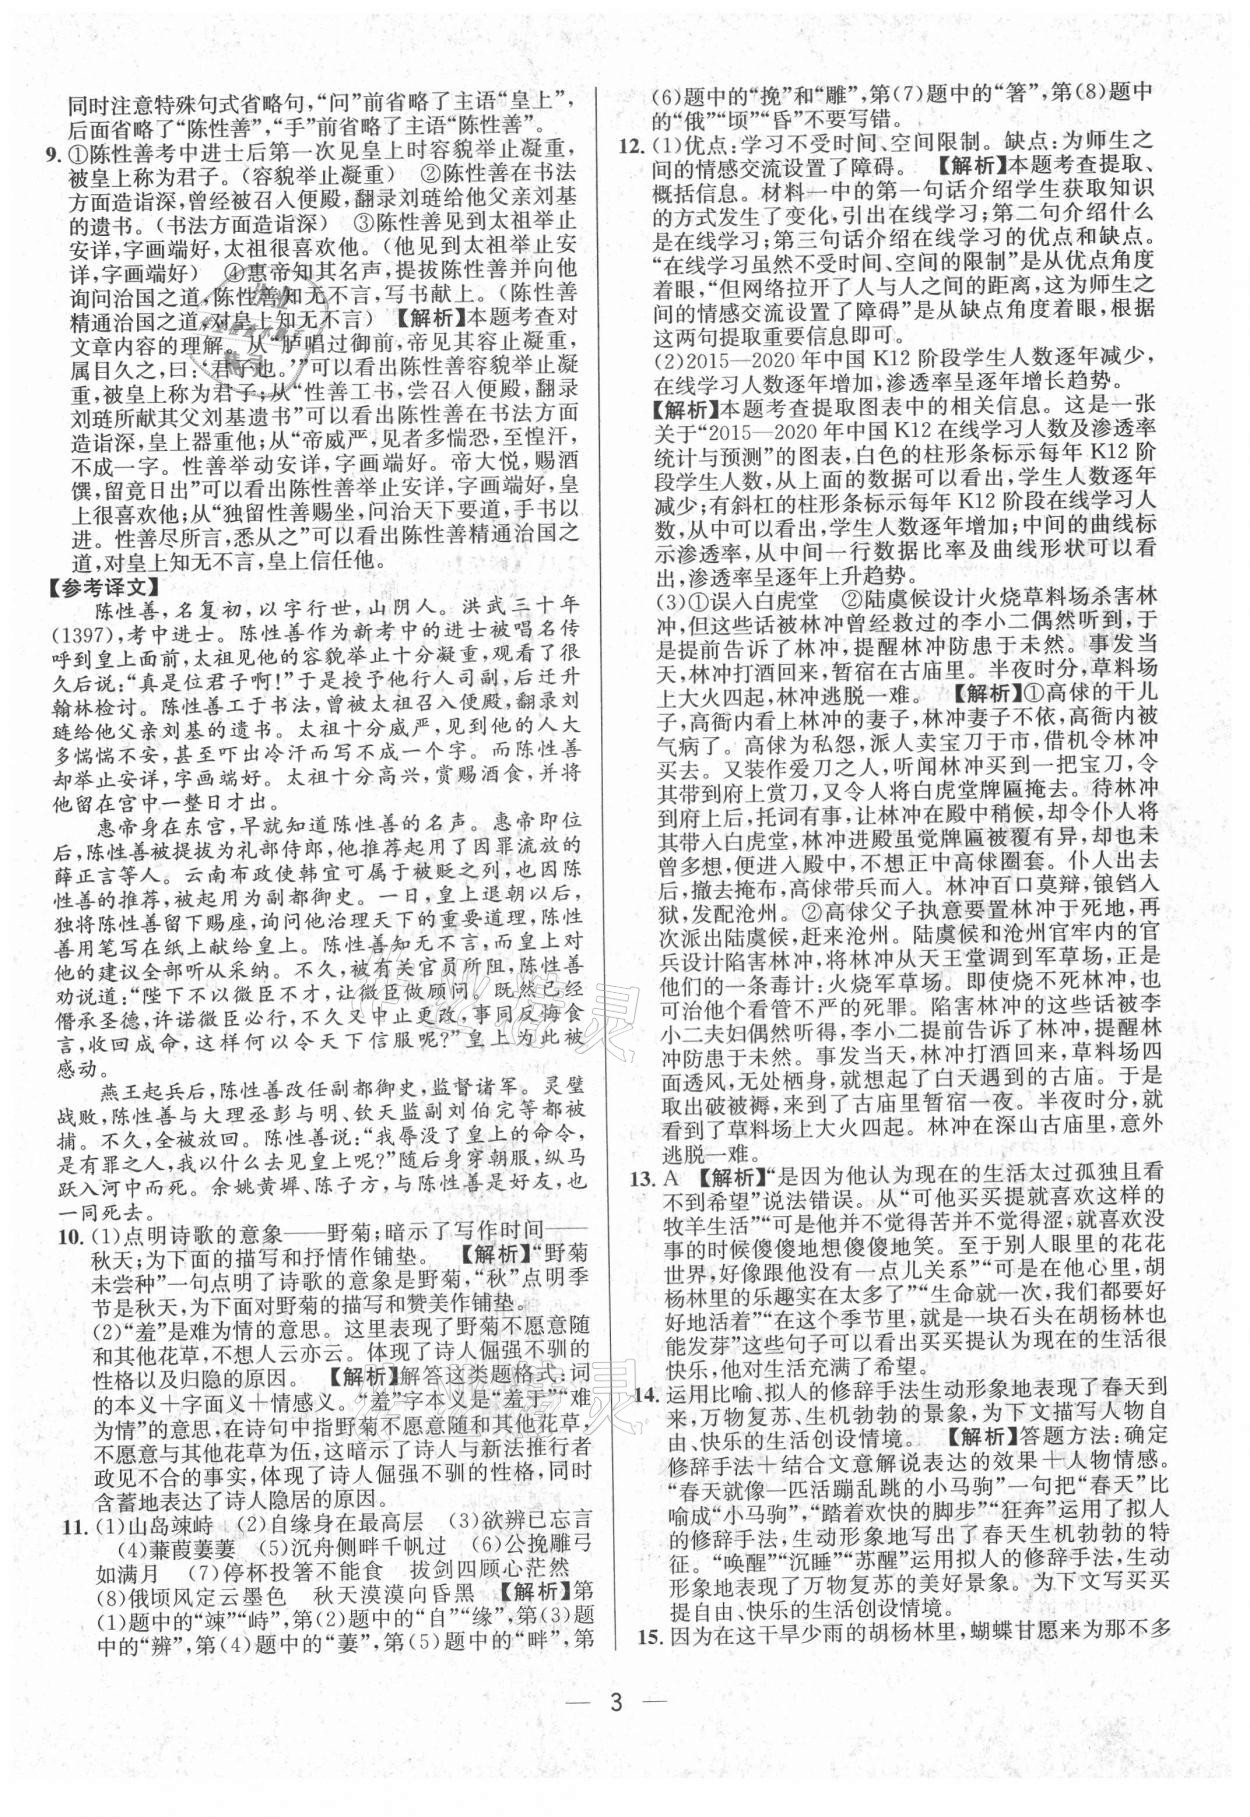 同时注意特殊句式省略句，“问”前省略了主语“皇上”，
后面省略了“陈性善”，“手”前省略了主语“陈性善”。
9. ①陈性善考中进士后第一次见皇上时容貌举止凝重，
被皇上称为君子。(容貌举止凝重)　②陈性善在书法
方面造诣深，曾经被召入便殿，翻录刘琏给他父亲刘基
的遗书。(书法方面造诣深)　③陈性善在皇上前举止
安详，字画端好，太祖很喜欢他。(他见皇上举止安
详，字画端好)　④惠帝知其名声，提拔陈性善并向他
询问治国之道，陈性善知无不言，写书献上。(陈性善
精通治国之道，对皇上知无不言)【解析】本题考查对
文章内容的理解。从“胪唱过御前，帝见其容止凝重，
属目久之，曰：‘君子也。’”可以看出陈性善容貌举止凝
重，被皇上称为君子；从“性善工书，尝召入便殿，翻录
刘琏所献其父刘基遗书”可以看出陈性善在书法方面
造诣深，皇上器重他；从“帝威严，见者多惴恐，至惶汗，
不成一字。性善举动安详，字画端好。帝大悦，赐酒
馔，留竟日出”可以看出陈性善举止安详，字画端好，皇
上很喜欢他；从“独留性善赐坐，问治天下要道，手书以
进。性善尽所言，悉从之”可以看出陈性善精通治国之
道，对皇上知无不言，皇上信任他。
【参考译文】
陈性善，名复初，以字行世，山阴人。洪武三十年
(1397)，考中进士。陈性善作为新考中的进士被唱名传
呼到皇上面前，太祖见他的容貌举止十分凝重，观看了很
久后说：“真是位君子啊！”于是授予他行人司副，后迁升
翰林检讨。陈性善工于书法，曾被太祖召入便殿，翻录刘
琏给他父亲刘基的遗书。太祖十分威严，见到他的人大
多惴惴不安，甚至吓出冷汗而写不成一个字。而陈性善
却举止安详，字画端好。太祖十分高兴，赏赐酒食，并将
他留在宫中一整日才出。
惠帝身在东宫，早就知道陈性善的名声。惠帝即位
后，陈性善被提拔为礼部侍郎，他推荐起用了因罪流放的
薛正言等人。云南布政使韩宜可属于被贬之列，也因陈
性善的推荐，被起用为副都御史。一日，皇上退朝以后，
独将陈性善留下赐座，询问他治理天下的重要道理，陈性
善用笔写在纸上献给皇上。陈性善知无不言，而皇上对
他的建议全部听从采纳。不久，被有关官员所阻，陈性善
劝说道：“陛下不以微臣不才，让微臣做顾问。既然已经
僭承圣德，许诺微臣必行，不久又中止更改，事同反悔食
言，收回成命，这样何以令天下信服呢？”皇上为此被
感动。
燕王起兵后，陈性善改任副都御史，监督诸军。灵璧
战败，陈性善与大理丞彭与明、钦天监副刘伯完等都被
捕。不久，全被放回。陈性善说：“我辱没了皇上的命令，
是有罪之人，我以什么去见皇上呢？”随后身穿朝服，纵马
跃入河中而死。余姚黄墀、陈子方，与陈性善是好友，也
一同死去。
10. (1)点明诗歌的意象——野菊；暗示了写作时间——
秋天；为下面的描写和抒情作铺垫。　【解析】“野菊
未尝种”一句点明了诗歌的意象是野菊，“秋”点明季
节是秋天，为下面对野菊的描写和赞美作铺垫。
(2)“羞”是难为情的意思。这里表现了野菊不愿意随
和其他花草，不想人云亦云。体现了诗人倔强不驯的
性格以及归隐的原因。　【解析】解答这类题格式：词
的本义＋字面义＋情感义。“羞”字本义是“羞于”“难
为情”的意思，在诗句中指野菊不愿意随和其他花草，
不愿意与其他花草为伍，这暗示了诗人与新法推行者
政见不合的事实，体现了诗人倔强不驯的性格，同时
含蓄地表达了诗人隐居的原因。
11. (1)山岛竦峙　(2)自缘身在最高层　(3)欲辨已忘言
(4)蒹葭萋萋　(5)沉舟侧畔千帆过　(6)会挽雕弓
如满月　(7)停杯投箸不能食　拔剑四顾心茫然
(8)俄顷风定云墨色　秋天漠漠向昏黑　【解析】第
(1)题中的“竦”“峙”，第(2)题中的“自”“缘”，第(3)题
中的“辨”，第(4)题中的“萋”，第(5)题中的“畔”，第
(6)题中的“挽”和“雕”，第(7)题中的“箸”，第(8)题中
的“俄”“顷”“昏”不要写错。
12. (1)优点：学习不受时间、空间限制。缺点：为师生之
间的情感交流设置了障碍。　【解析】本题考查提取、
概括信息。材料一中的第一句话介绍学生获取知识
的方式发生了变化，引出在线学习；第二句介绍什么
是在线学习；第三句话介绍在线学习的优点和缺点。
“在线学习虽然不受时间、空间的限制”是从优点角度
着眼，“但网络拉开了人与人之间的距离，这为师生之
间的情感交流设置了障碍”是从缺点角度着眼，根据
这两句提取重要信息即可。
(2)2015—2020年中国K12阶段学生人数逐年减少，
在线学习人数逐年增加，渗透率呈逐年增长趋势。
【解析】本题考查提取图表中的相关信息。这是一张
关于“2015—2020年中国K12在线学习人数及渗透率
统计与预测”的图表，白色的柱形条标示每年K12阶
段学生人数，从上面的数据可以看出，学生人数逐年
减少；有斜杠的柱形条标示每年K12阶段在线学习人
数，从中可以看出，学生人数逐年增加；中间的曲线标
示渗透率，从中间一行数据比率及曲线形状可以看
出，渗透率呈逐年上升趋势。
(3)①误入白虎堂　②陆虞候设计火烧草料场杀害林
冲，但这些话被林冲曾经救过的李小二偶然听到，于
是提前告诉了林冲，提醒林冲防患于未然。事发当
天，林冲打酒回来，暂宿在古庙里。半夜时分，草料场
上大火四起，林冲逃脱一难。　【解析】①高俅的干儿
子，高衙内看上林冲的妻子，林冲妻子不依，高衙内被
气病了。高俅为私怨，派人卖宝刀于市，借机令林冲
买去。又装作爱刀之人，听闻林冲买到一把宝刀，令
其带到府上赏刀，又令人将白虎堂牌匾掩去。待林冲
到府上后，托词有事，让林冲在殿中稍候，却令仆人将
其带入白虎堂，林冲进殿虽觉牌匾被覆有异，却也未
曾多想，便进入殿中，不想正中高俅圈套。仆人出去
后，撤去掩布，高俅带兵而入。林冲百口莫辩，锒铛入
狱，发配沧州。②高俅父子执意要置林冲于死地，再
次派出陆虞候，赶往沧州。陆虞候和沧州官牢内的官
兵设计陷害林冲，将林冲从天王堂调到军草场，正是
他们的一条毒计：火烧军草场。即使烧不死林冲，也
可治他个看管不严的死罪。陷害林冲的这些话被李
小二夫妇偶然听得，李小二提前告诉林冲，提醒林
冲防患于未然。事发当天，林冲打酒回来，草料场四
面透风，无处栖身，就想起了白天遇到的古庙。于是
取出破被褥，来到了古庙里暂宿一夜。半夜时分，就
看到了草料场上大火四起。林冲在深山古庙里，意外
逃脱一难。
13. A　【解析】“是因为他认为现在的生活太过孤独且看
不到希望”说法错误。从“可他买买提就喜欢这样的
牧羊生活”“可是他并不觉得苦并不觉得涩，就喜欢没
事的时候傻傻地想傻傻地笑。至于别人眼里的花花
世界，好像跟他还没有一点儿关系”“可是在他心里，胡
杨林里的乐趣实在太多了”“生命就一次，我们都要好
好地活着”“在这个季节里，就是一块石头在胡杨林也
能发芽”这些句子可以看出买买提认为现在的生活很
快乐，他对生活充满了希望。
14. 运用比喻、拟人的修辞手法生动形象地表现了春天到
来，万物复苏、生机勃勃的景象，为下文描写人物自
由、快乐的生活创设情境。　【解析】答题方法：确定
修辞手法＋结合文意解说表达的效果＋人物情感。
“春天就像一匹活蹦乱跳的小马驹”一句把“春天”比
喻成“小马驹”，“踏着欢快的脚步”“狂奔”运用了拟人
的修辞手法，生动形象地写出了春天生机勃勃的特
征。“唤醒”“沉睡”“苏醒”运用拟人的修辞手法，生动
形象地表现了万物复苏的美好景象。为下文写买买
提自由、快乐的生活创设情境。
15. 因为在这干旱少雨的胡杨林里，蝴蝶甘愿来为那不多
— 3 —